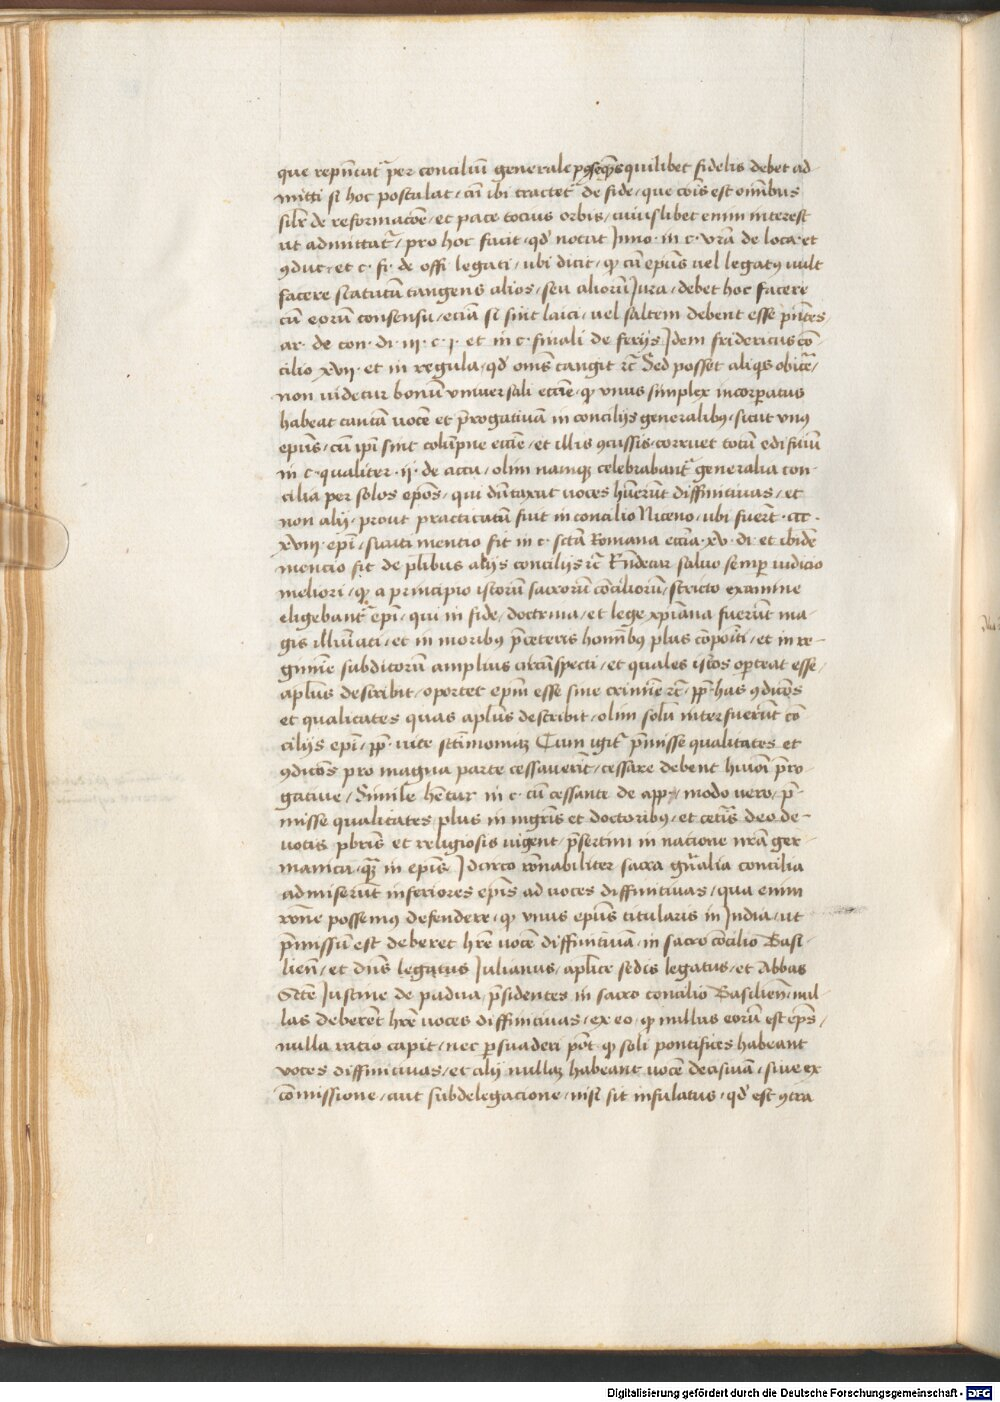 que rep̄ntat᷑ per conciliū generale ꝯſeq̄ns quilibet fidelis debet ad-
mitti ſi hoc poſtulat / cū ibi tractet᷑ de fide / que cōis eſt om̄ibus
ſil̄r de reformacōe / et pace tocius orbis / cuiuſlibet enim intereſt
ut admittat᷑ / pro hoc facit · qd̛ notat Inno · in c · vr̄a de loca · et
ꝯduc · et c · fi · de offi · legati / ubi dicit / ꝙ cū ep̄us uel legatꝰ uult
facere ſtatutū tangens alios / ſeu aliorū Jura / debet hoc facere
cū eorū conſenſu / eciā ſi ſint laici / uel ſaltem debent eſſe p̄ntes
ar · de con · di · iij · c · j · et in c · finali de ferijs Idem fridericus cō-
cilio xvij · et in regula / qd̛ om̄s tangit ꝛc̄ Sed poſſet aliq̄s obice᷑ /
non uidetur bonū vniuerſali eccīe / ꝙ vnus ſimplex incorꝑatus
habeat tantā uocē et p̄rogatiuā in concilijs generalibꝰ / ſicut vnꝰ
ep̄us / cū ip̄i ſint colūpne eccīe / et illis ꝯcuſſis · corruet totū edificiū
in c · qualiter · ij · de accu / olim namqꝫ celebrabant᷑ generalia con-
cilia per ſolos ep̄os / qui dūtaxat uoces hūerūt diffinitiuas / et
non alij / prout practicatū fuit in concilio Niceno / ubi fuer̄t · ccc ·
xviij · ep̄i / ſicuti mentio fit in c · ſctā Romana eccīa · xv · di · et ibidē
mentio fit de pl̄ibus alijs concilijs ꝛc̄ Rn̄detur ſaluo ſemꝑ iudicio
meliori / ꝙ a principio iſtorū ſacrorū cōciliorū / ſtricto examine
eligebant᷑ ep̄i / qui in fide / doctrina / et lege xpīana fuerūt ma-
gis illūiati / et in moribꝰ p̄ceteris homībꝰ plus cōpoiti / et in re-
gimīe ſubditorū amplius circūſpecti / et quales iſtos oꝑteat eſſe /
apl̄us deſcribit / oportet ep̄m eſſe ſine crimīe ꝛc̄ / pp̄ · has ꝯdicōs
et qualitates quas apl̄us deſcribit / olim ſolū interfuerūt cō
cilijs ep̄i / pp̄ · uite ſctimoniaꝫ Cum igit᷑ p̄miſſe qualitates et
ꝯdicōs pro magna parte ceſſauerīt / ceſſare debent huiōi p̄ro-
gatiue / Simile hētur in c · cū ceſſante de app · / modo uero / p̄-
miſſe qualitates plus in mgr̄is et doctoribꝰ / et cet̄is deo de-
uotis pb̄ris et religioſis uigent / p̄ſertim in natione nr̄a ger
manica / qꝫ in ep̄is Idcirco rōnabiliter ſacra gn̄alia concilia
admiſerūt inferiores ep̄is ad uoces diffinitiuas / qua enim
rōne poſſemꝰ defendere / ꝙ vnus ep̄us titularis in India / ut
p̄miſſū eſt deberet hr̄e uocē diffinitiuā · in ſacro cōcilio Baſi-
lien̄ / et dn̄s legatus Julianus / aplīce ſedis legatus / et Abbas
Scte Juſtine de padua p̄ſidentes in ſacro concilio Baſilien̄ nul
las deberēt hr̄e uoces diffinitiuas / ex eo · ꝙ nullus eorū eſt ep̄s /
nulla ratio capit / nec ꝑſuaderi pōt · ꝙ ſoli pontifices habeant
voces diffinitiuas / et alij nullaꝫ habeant uocē deciſiuā / ſiue ex
cōmiſſione / aut ſubdelegacione / niſi ſit inſulatus · qd̛ eſt ꝯtra
Digitalisierung gefördert durch die Deutsche Forschungsgemeinschaft - DFG